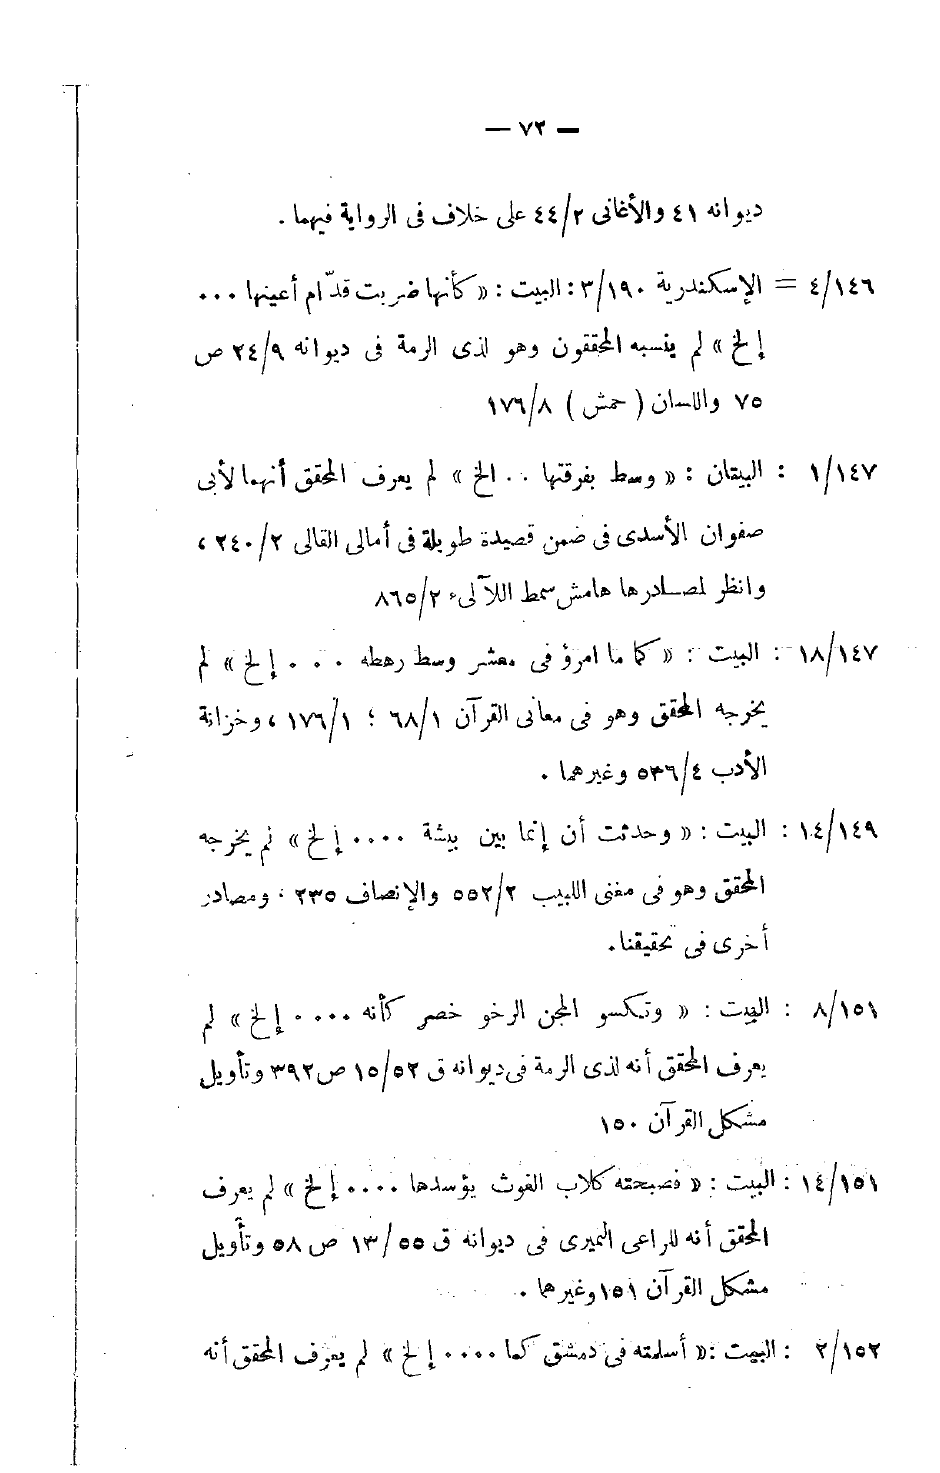 — ٧٣ —
ديوانه ٤١ والأغانى ٤٤/٢ على خلاف فى الرواية فيهما .
٤/١٤٦ = الإسكندرية ٣/١٩٠ : البيت : « كأنها ضربت قدّام أعينها ...
إلخ » لم ينسبه المحققون وهو لذى الرمة فى ديوانه ٢٤/٩ ص
٧٥ واللسان ( حمش ) ١٧٦/٨
١/١٤٧ : البيتان : « وسط بفرقتها .. الخ » لم يعرف المحقق أنهما لأبى
صفوان الأسدى فى ضمن قصيدة طويلة فى أمالى القالى ٢٤٠/٢ ،
وانظر لمصادرها هامش سمط اللآلىء ٨٦٥/٢
١٨/١٤٧ : البيت : « كما ما امرؤ فى معشر وسط رهطه ... إلخ » لم
يخرجه المحقق وهو فى معانى القرآن ٦٨/١ ؛ ١٧٦/١ ، وخزانة
الأدب ٥٣٦/٤ وغيرهما .
١٤/١٤٩ : البيت : « وحدثت أن إنما بين بيشة .... إلخ » لم يخرجه
المحقق وهو فى مغنى اللبيب ٥٥٢/٢ والإنصاف ٢٣٥ ، ومصادر
أخرى فى تحقيقنا .
٨/١٥١ : البيت : « وتكسو المجن الرخو خصر كأنه .... إلخ » لم
يعرف المحقق أنه لذى الرمة فى ديوانه ق ١٥/٥٢ ص ٣٩٢ وتأويل
مشكل القرآن ١٥٠
١٤/١٥١ : البيت : « فصبحته كلاب الغوث يؤسدها .... إلخ » لم يعرف
المحقق أنه للراعى النميرى فى ديوانه ق ١٣/٥٥ ص ٥٨ وتأويل
مشكل القرآن ١٥١ وغيرهما .
٢/١٥٢ : البيت : « أسلمته فى دمشق كما .... إلخ » لم يعرف المحقق أنه